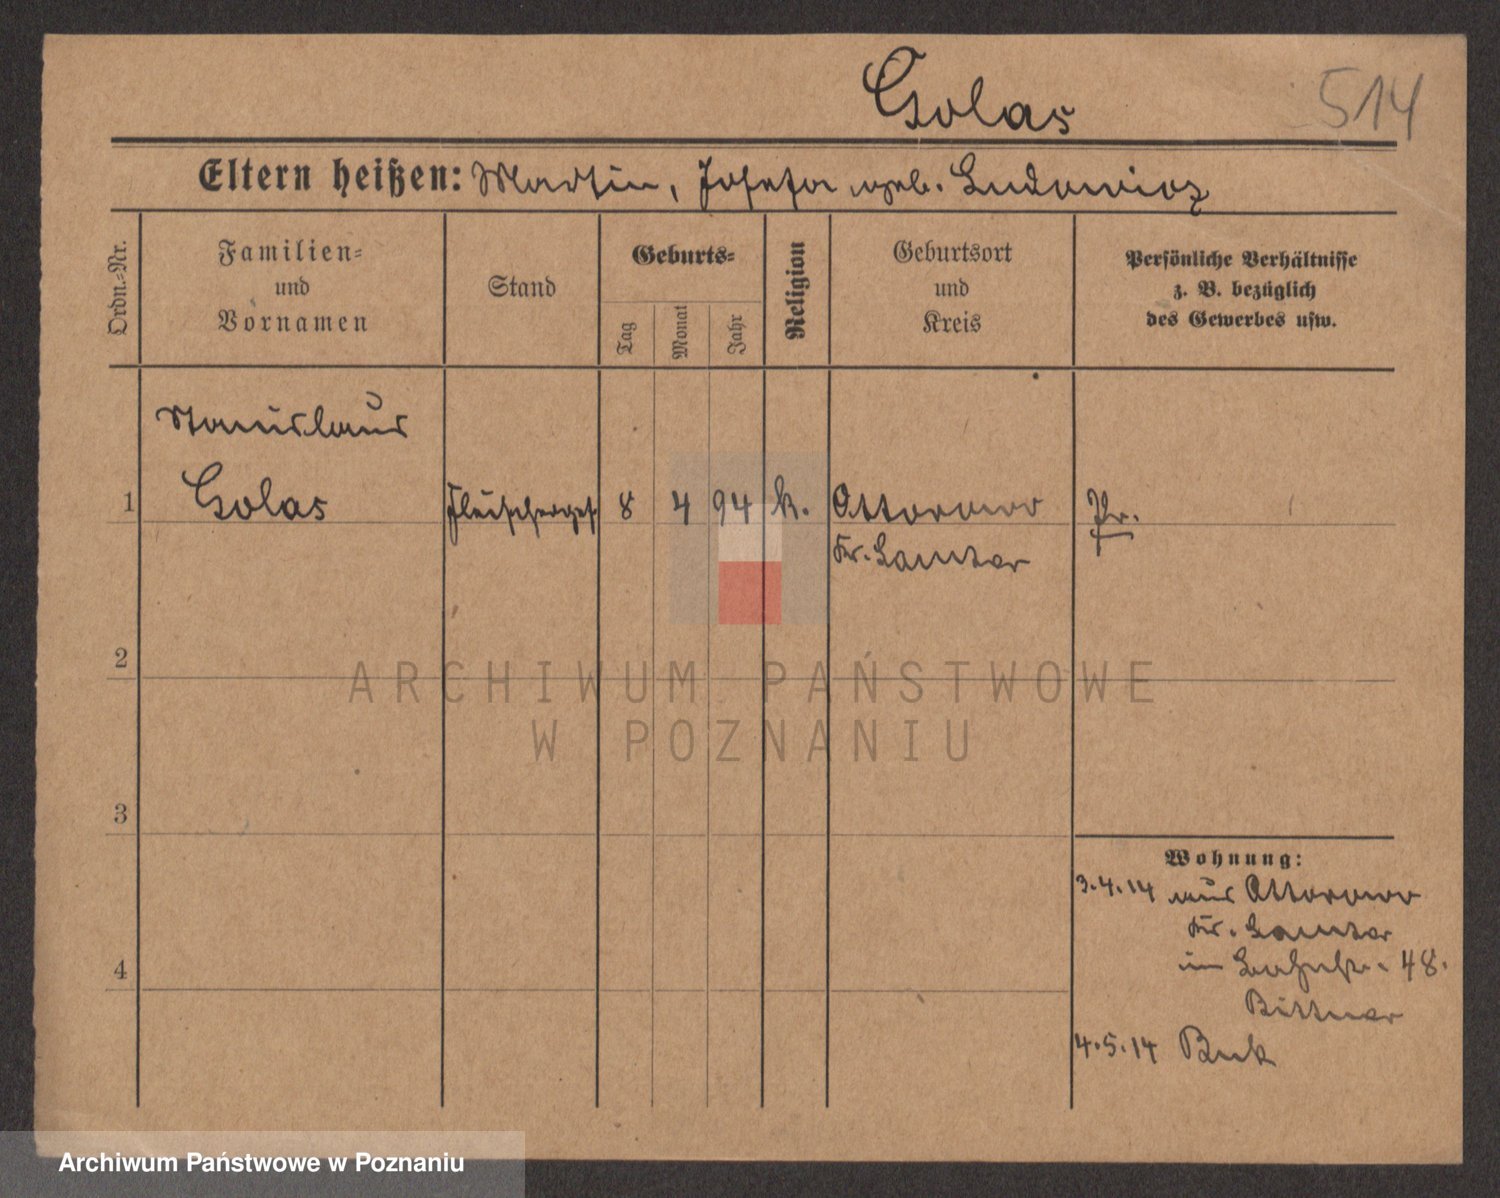 Golas
514
Eltern heißen: Martin, Josefa geb. Ludowicz
Ordn.-Nr.
Familien-
und
Vornamen
Stand
Geburts-
Tag
Monat
Jahr
Religion
Geburtsort
und
Kreis
Persönliche Verhältnisse
z. B. bezüglich
des Gewerbes usw.
Stanislaus
1 Golas Fleischerges. 8 4 94 k. Ottorowo Pr.
Kr. Samter
2
3
4
Wohnung:
3.4.14 aus Ottorowo
Kr. Samter
in 48.
Bittner
4.5.14 Buk
ARCHIWUM PAŃSTWOWE
W POZNANIU
Archiwum Państwowe w Poznaniu